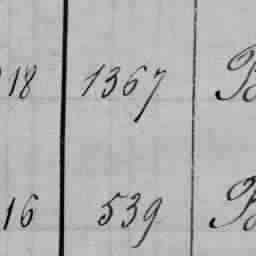 18 1367 B
16 539 B